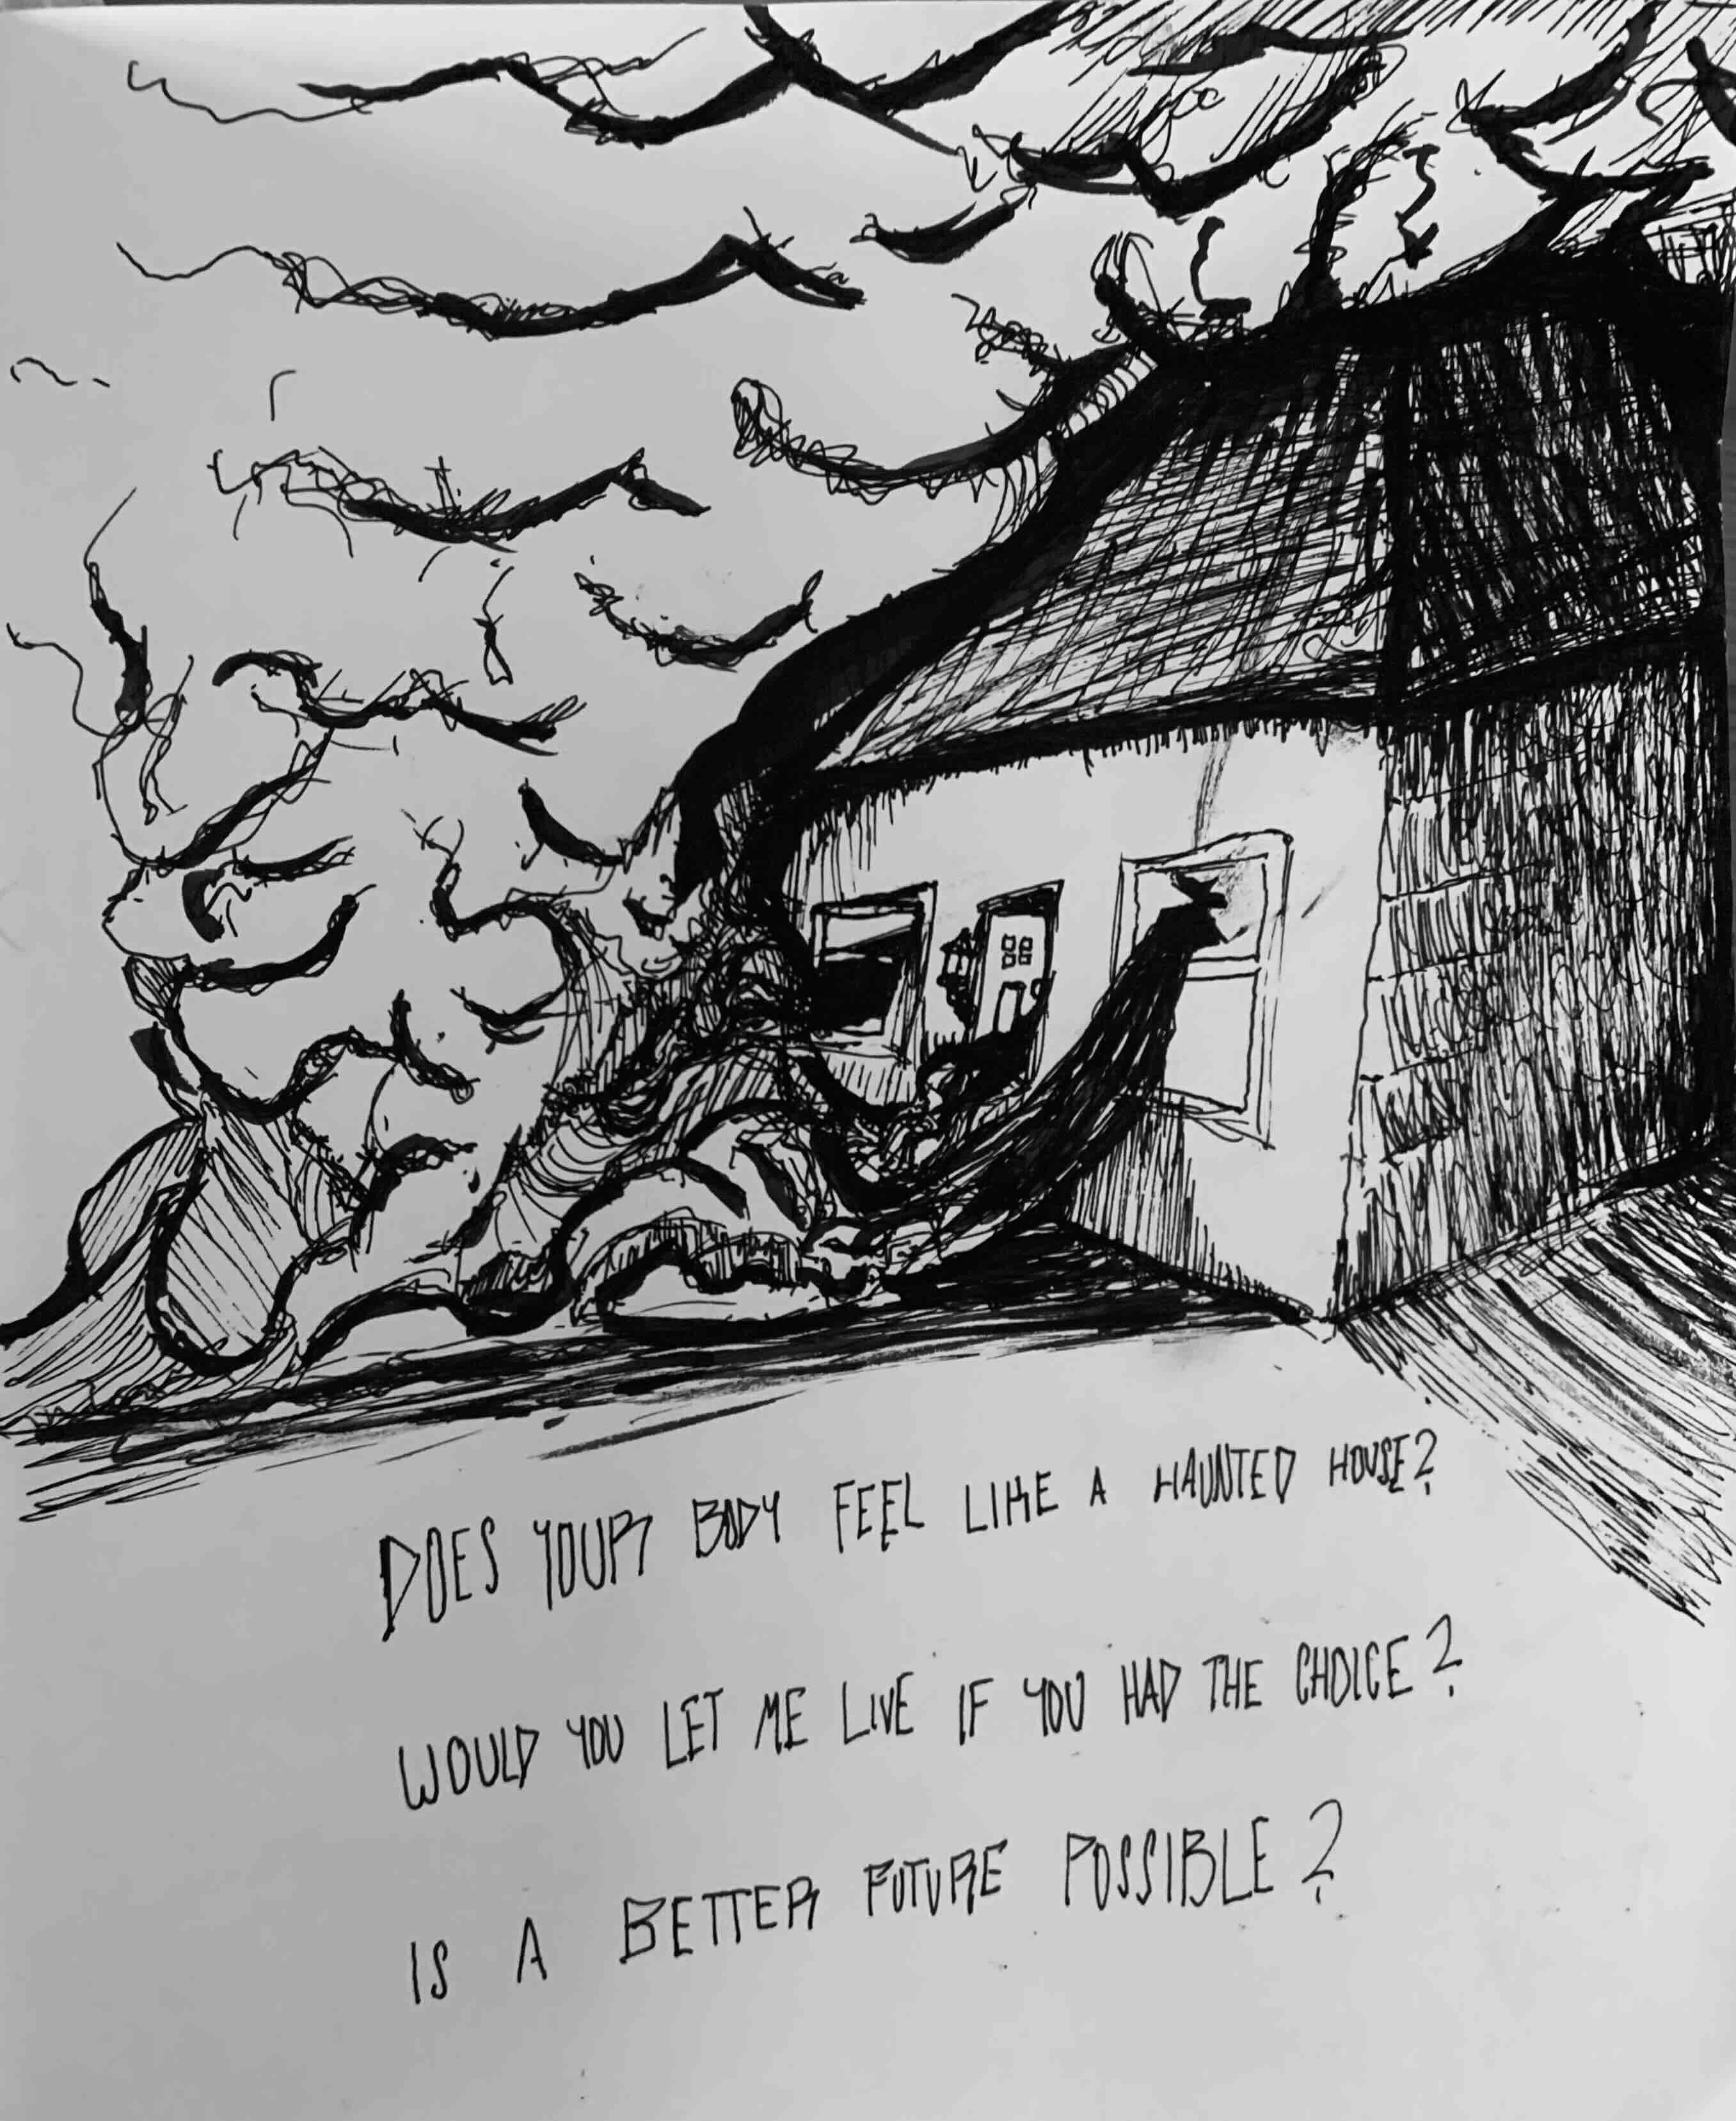 DOES YOUR BODY FEEL LIKE A HAUNTED HOUSE?
WOULD YOU LET ME LIVE IF YOU HAD THE CHOICE?
IS A BETTER FUTURE POSSIBLE?